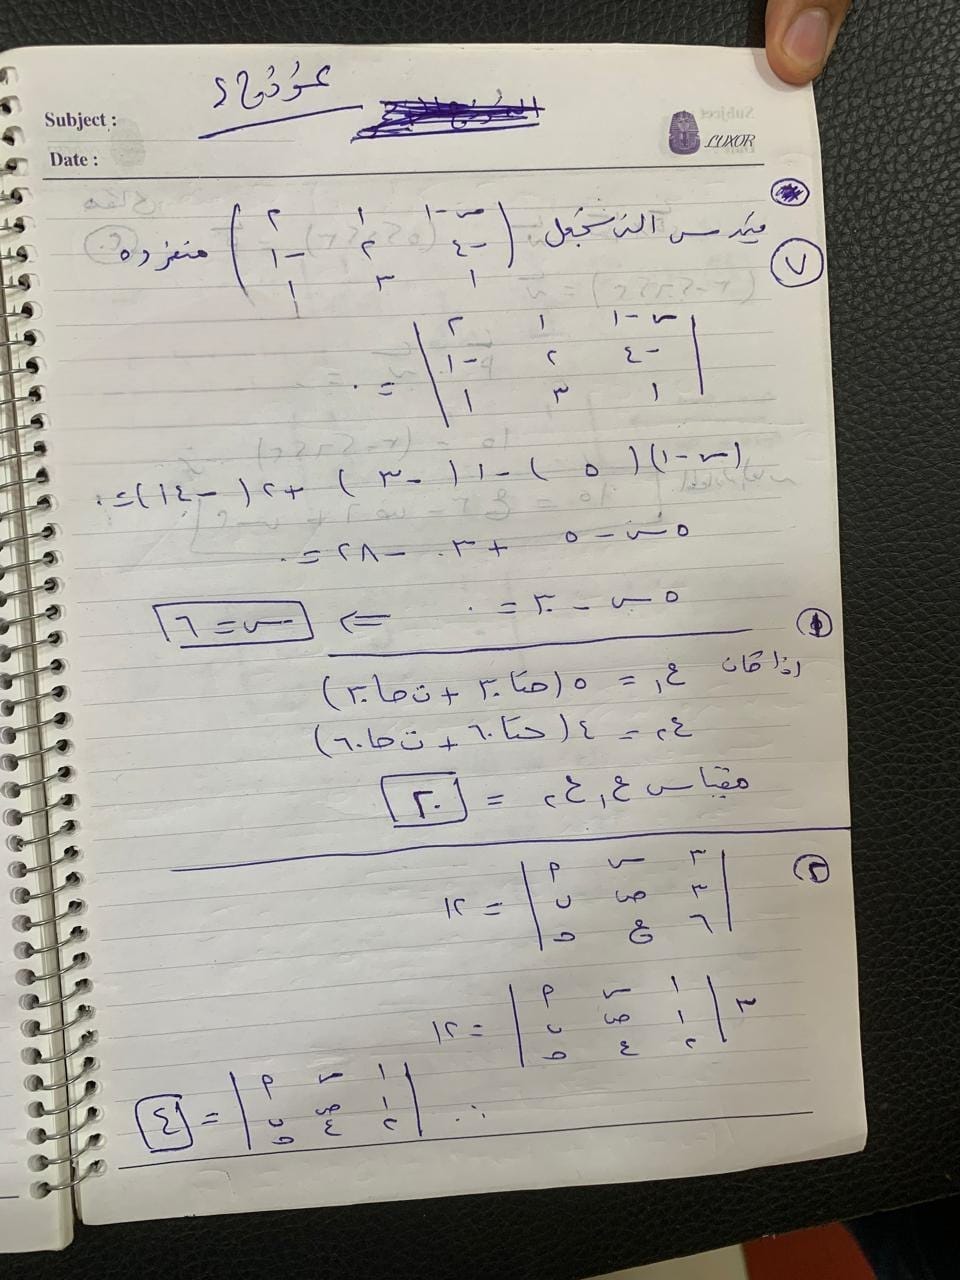 Subject :
Date :
LUXOR
٧
قيمة س التي تجعل
س-١ ١ ٢
-٤ ٢ -١
١ ٣ ١
منفرده
س-١ ١ ٢
-٤ ٢ -١
١ ٣ ١
= ٠
(س-١)( ٥ ) -١( -٣ ) +٢( -١٤)=٠
٥س - ٥ + ٣ - ٢٨ = ٠
٥س - ٣٠ = ٠ ⇐ س = ٦
١
اذا كان ع١ = ٥ (حتا ٣٠ + ت حا ٣٠)
ع٢ = ٤ (حتا ٦٠ + ت حا ٦٠)
مقياس ع١ ع٢ = ٢٠
٢
٣ س م
٣ ص ن
٦ ع ه
= ١٢
٣
١ س م
١ ص ن
٢ ع ه
= ١٢
∴
١ س م
١ ص ن
٢ ع ه
= ٤